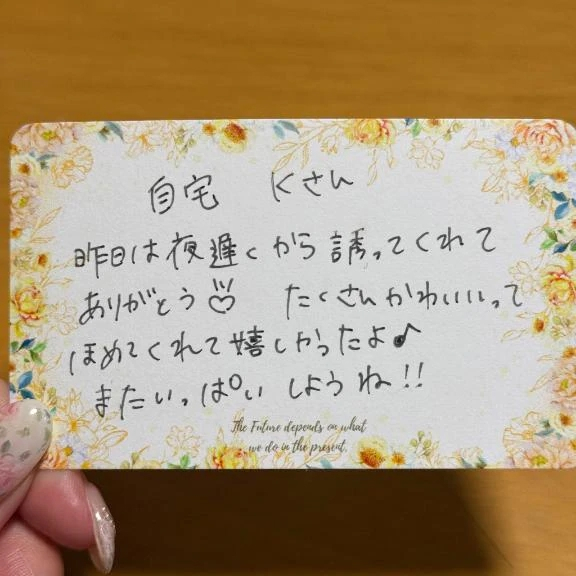 自宅 Kさん
昨日は夜遅くから誘ってくれて
ありがとう♡ たくさんかわいいって
ほめてくれて嬉しかったよ♪
またいっぱいしようね!!
The Future depends on what
we do in the present.